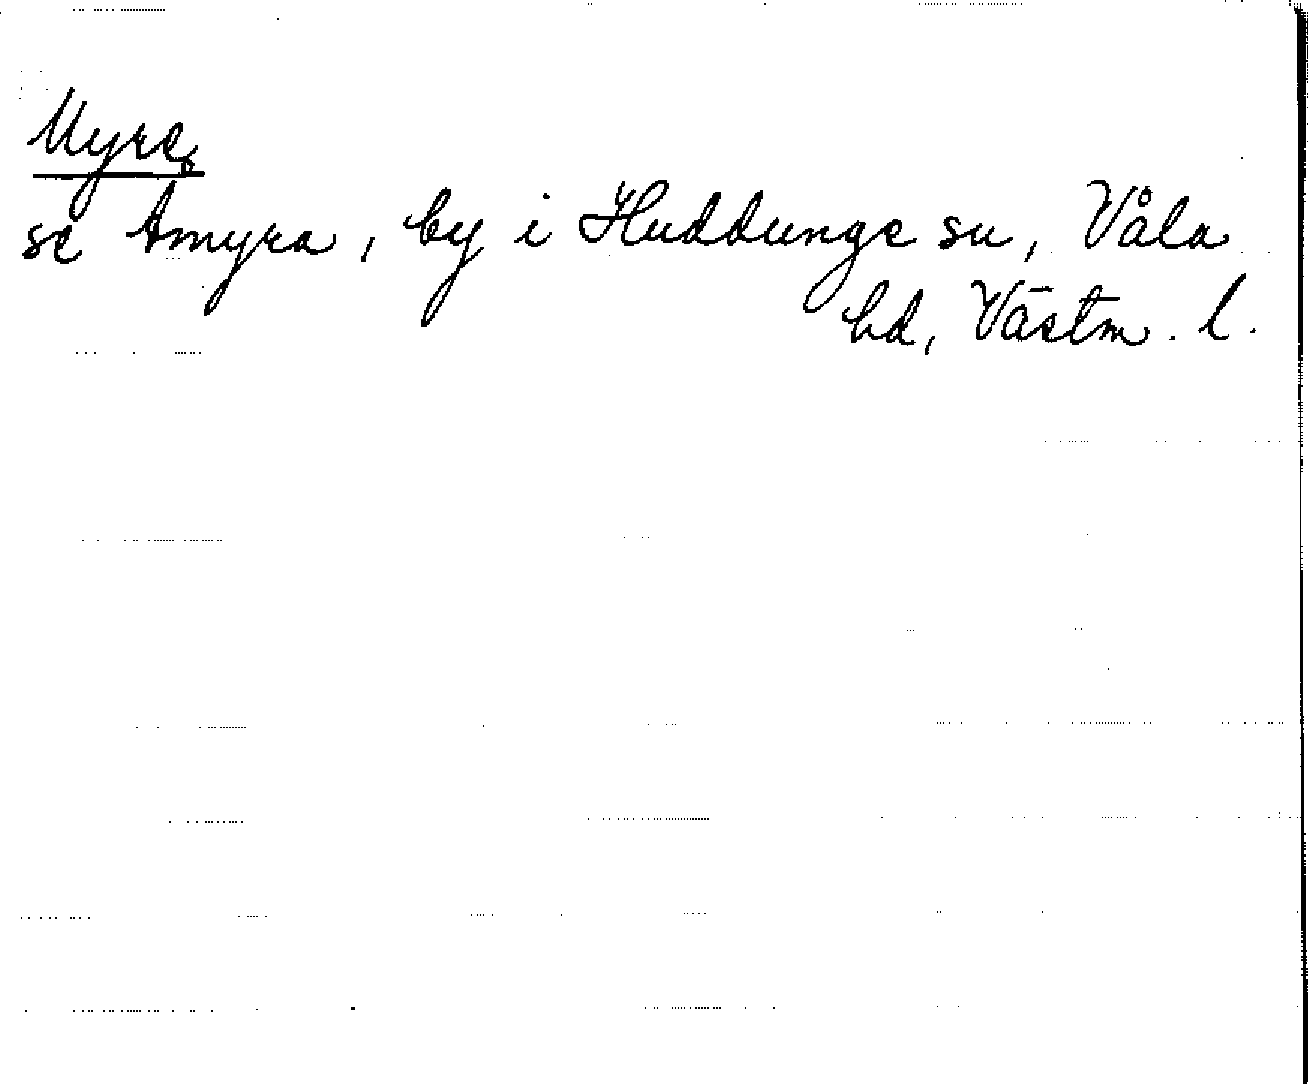 Myre
se Amyra, by i Huddunge sn, Våla
hd, Västm. l.